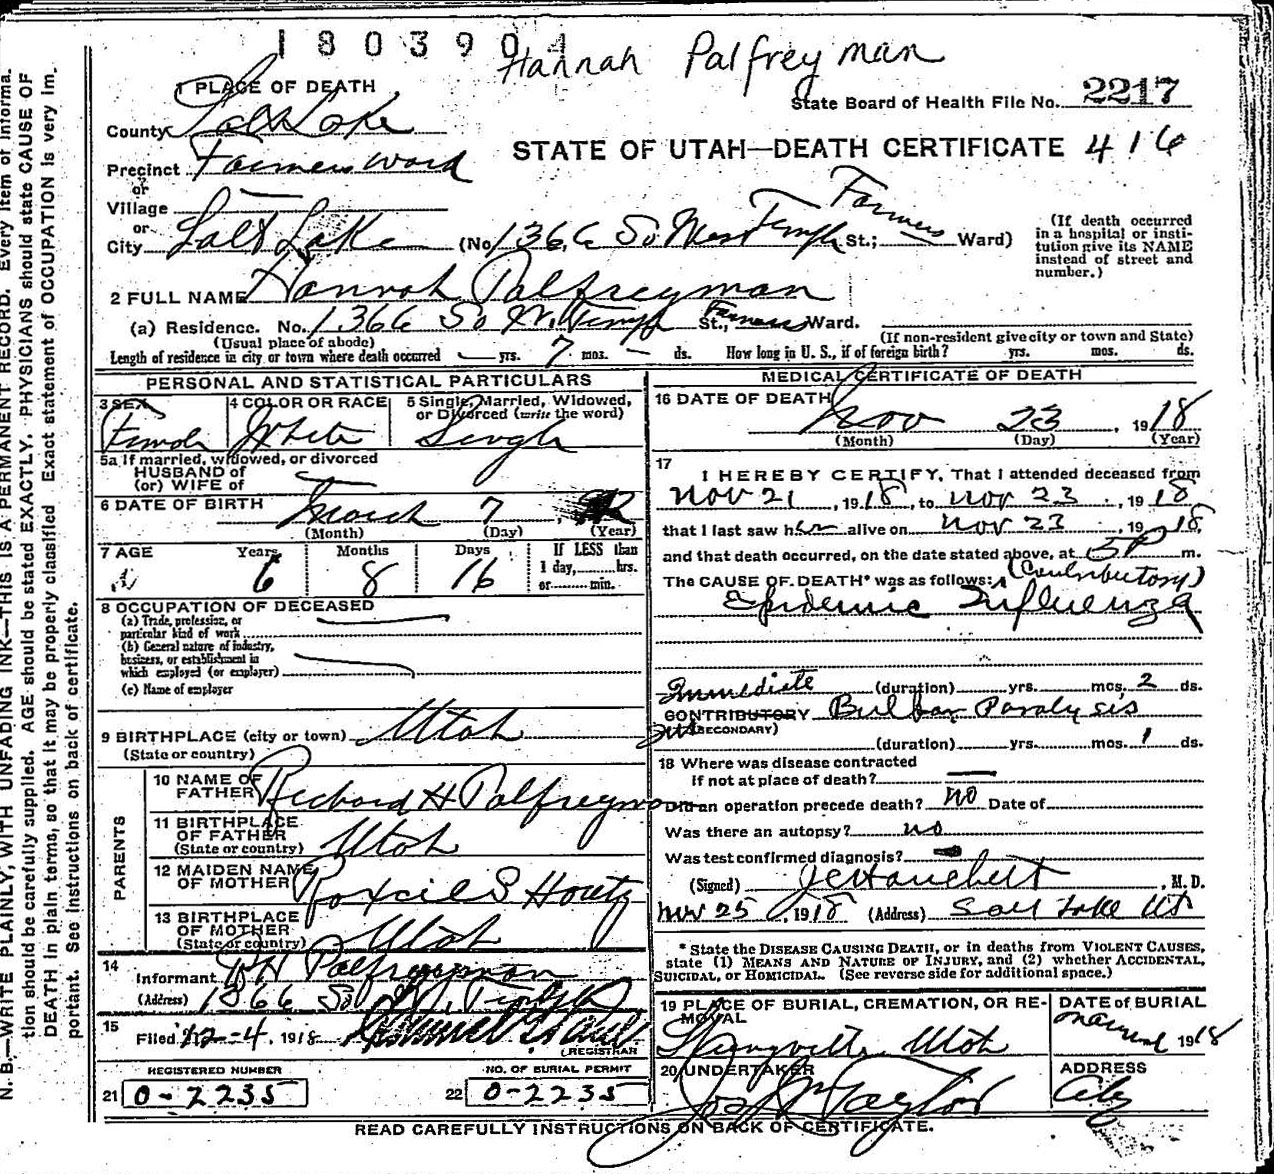 1803904
Hannah Palfreyman
1 PLACE OF DEATH
State Board of Health File No. 2217
County Salt Lake
STATE OF UTAH—DEATH CERTIFICATE 416
Precinct Farmers Ward
or
Village
or
City Salt Lake (No. 1366 So West Temple St.; Farmers Ward)
(If death occurred in a hospital or insti-
tution give its NAME
instead of street and
number.)
2 FULL NAME Hannah Palfreyman
(a) Residence. No. 1366 So W. Temple St., Farmers Ward.
(Usual place of abode) (If non-resident give city or town and State)
Length of residence in city or town where death occurred — yrs. 7 mos. — ds. How long in U. S., if of foreign birth? yrs. mos. ds.
PERSONAL AND STATISTICAL PARTICULARS
3 SEX Female
4 COLOR OR RACE White
5 Single, Married, Widowed,
or Divorced (write the word)
Single
5a If married, widowed, or divorced
HUSBAND of
(or) WIFE of
6 DATE OF BIRTH March 7
(Month) (Day) (Year)
7 AGE Years 6 Months 8 Days 16 If LESS than
1 day, hrs.
or min.
8 OCCUPATION OF DECEASED
(a) Trade, profession, or
particular kind of work
(b) General nature of industry,
business, or establishment in
which employed (or employer)
(c) Name of employer
9 BIRTHPLACE (city or town) Utah
(State or country)
PARENTS
10 NAME OF
FATHER Richard H Palfreyman
11 BIRTHPLACE
OF FATHER
(State or country) Utah
12 MAIDEN NAME
OF MOTHER Roxcie S Houtz
13 BIRTHPLACE
OF MOTHER
(State or country) Utah
14
Informant R H Palfreyman
(Address) 1366 So W. Temple
15
Filed 12-4, 1918
REGISTRAR
REGISTERED NUMBER
21 0-2235
NO. OF BURIAL PERMIT
22 0-2235
MEDICAL CERTIFICATE OF DEATH
16 DATE OF DEATH
Nov 23, 1918
(Month) (Day) (Year)
17
I HEREBY CERTIFY, That I attended deceased from
Nov 21, 1918, to Nov 23, 1918
that I last saw her alive on Nov 23, 1918,
and that death occurred, on the date stated above, at 5 P m.
The CAUSE OF DEATH* was as follows: (Contributory)
Epidemic Influenza
Immediate (duration) yrs. mos. 2 ds.
CONTRIBUTORY Bulbar Paralysis
(SECONDARY)
(duration) yrs. mos. 1 ds.
18 Where was disease contracted
if not at place of death? —
Did an operation precede death? no Date of
Was there an autopsy? no
Was test confirmed diagnosis?
(Signed) M. D.
Nov 25, 1918 (Address) Salt Lake Ut
* State the DISEASE CAUSING DEATH, or in deaths from VIOLENT CAUSES,
state (1) MEANS AND NATURE OF INJURY, and (2) whether ACCIDENTAL,
SUICIDAL, OR HOMICIDAL. (See reverse side for additional space.)
19 PLACE OF BURIAL, CREMATION, OR RE-
MOVAL
Springville Utah
DATE of BURIAL
1918
20 UNDERTAKER
Jos Wm Taylor
ADDRESS
City
READ CAREFULLY INSTRUCTIONS ON BACK OF CERTIFICATE.
N. B.—WRITE PLAINLY, WITH UNFADING INK—THIS IS A PERMANENT RECORD. Every item of informa-
tion should be carefully supplied. AGE should be stated EXACTLY. PHYSICIANS should state CAUSE OF
DEATH in plain terms, so that it may be properly classified. Exact statement of OCCUPATION is very im-
portant. See instructions on back of certificate.